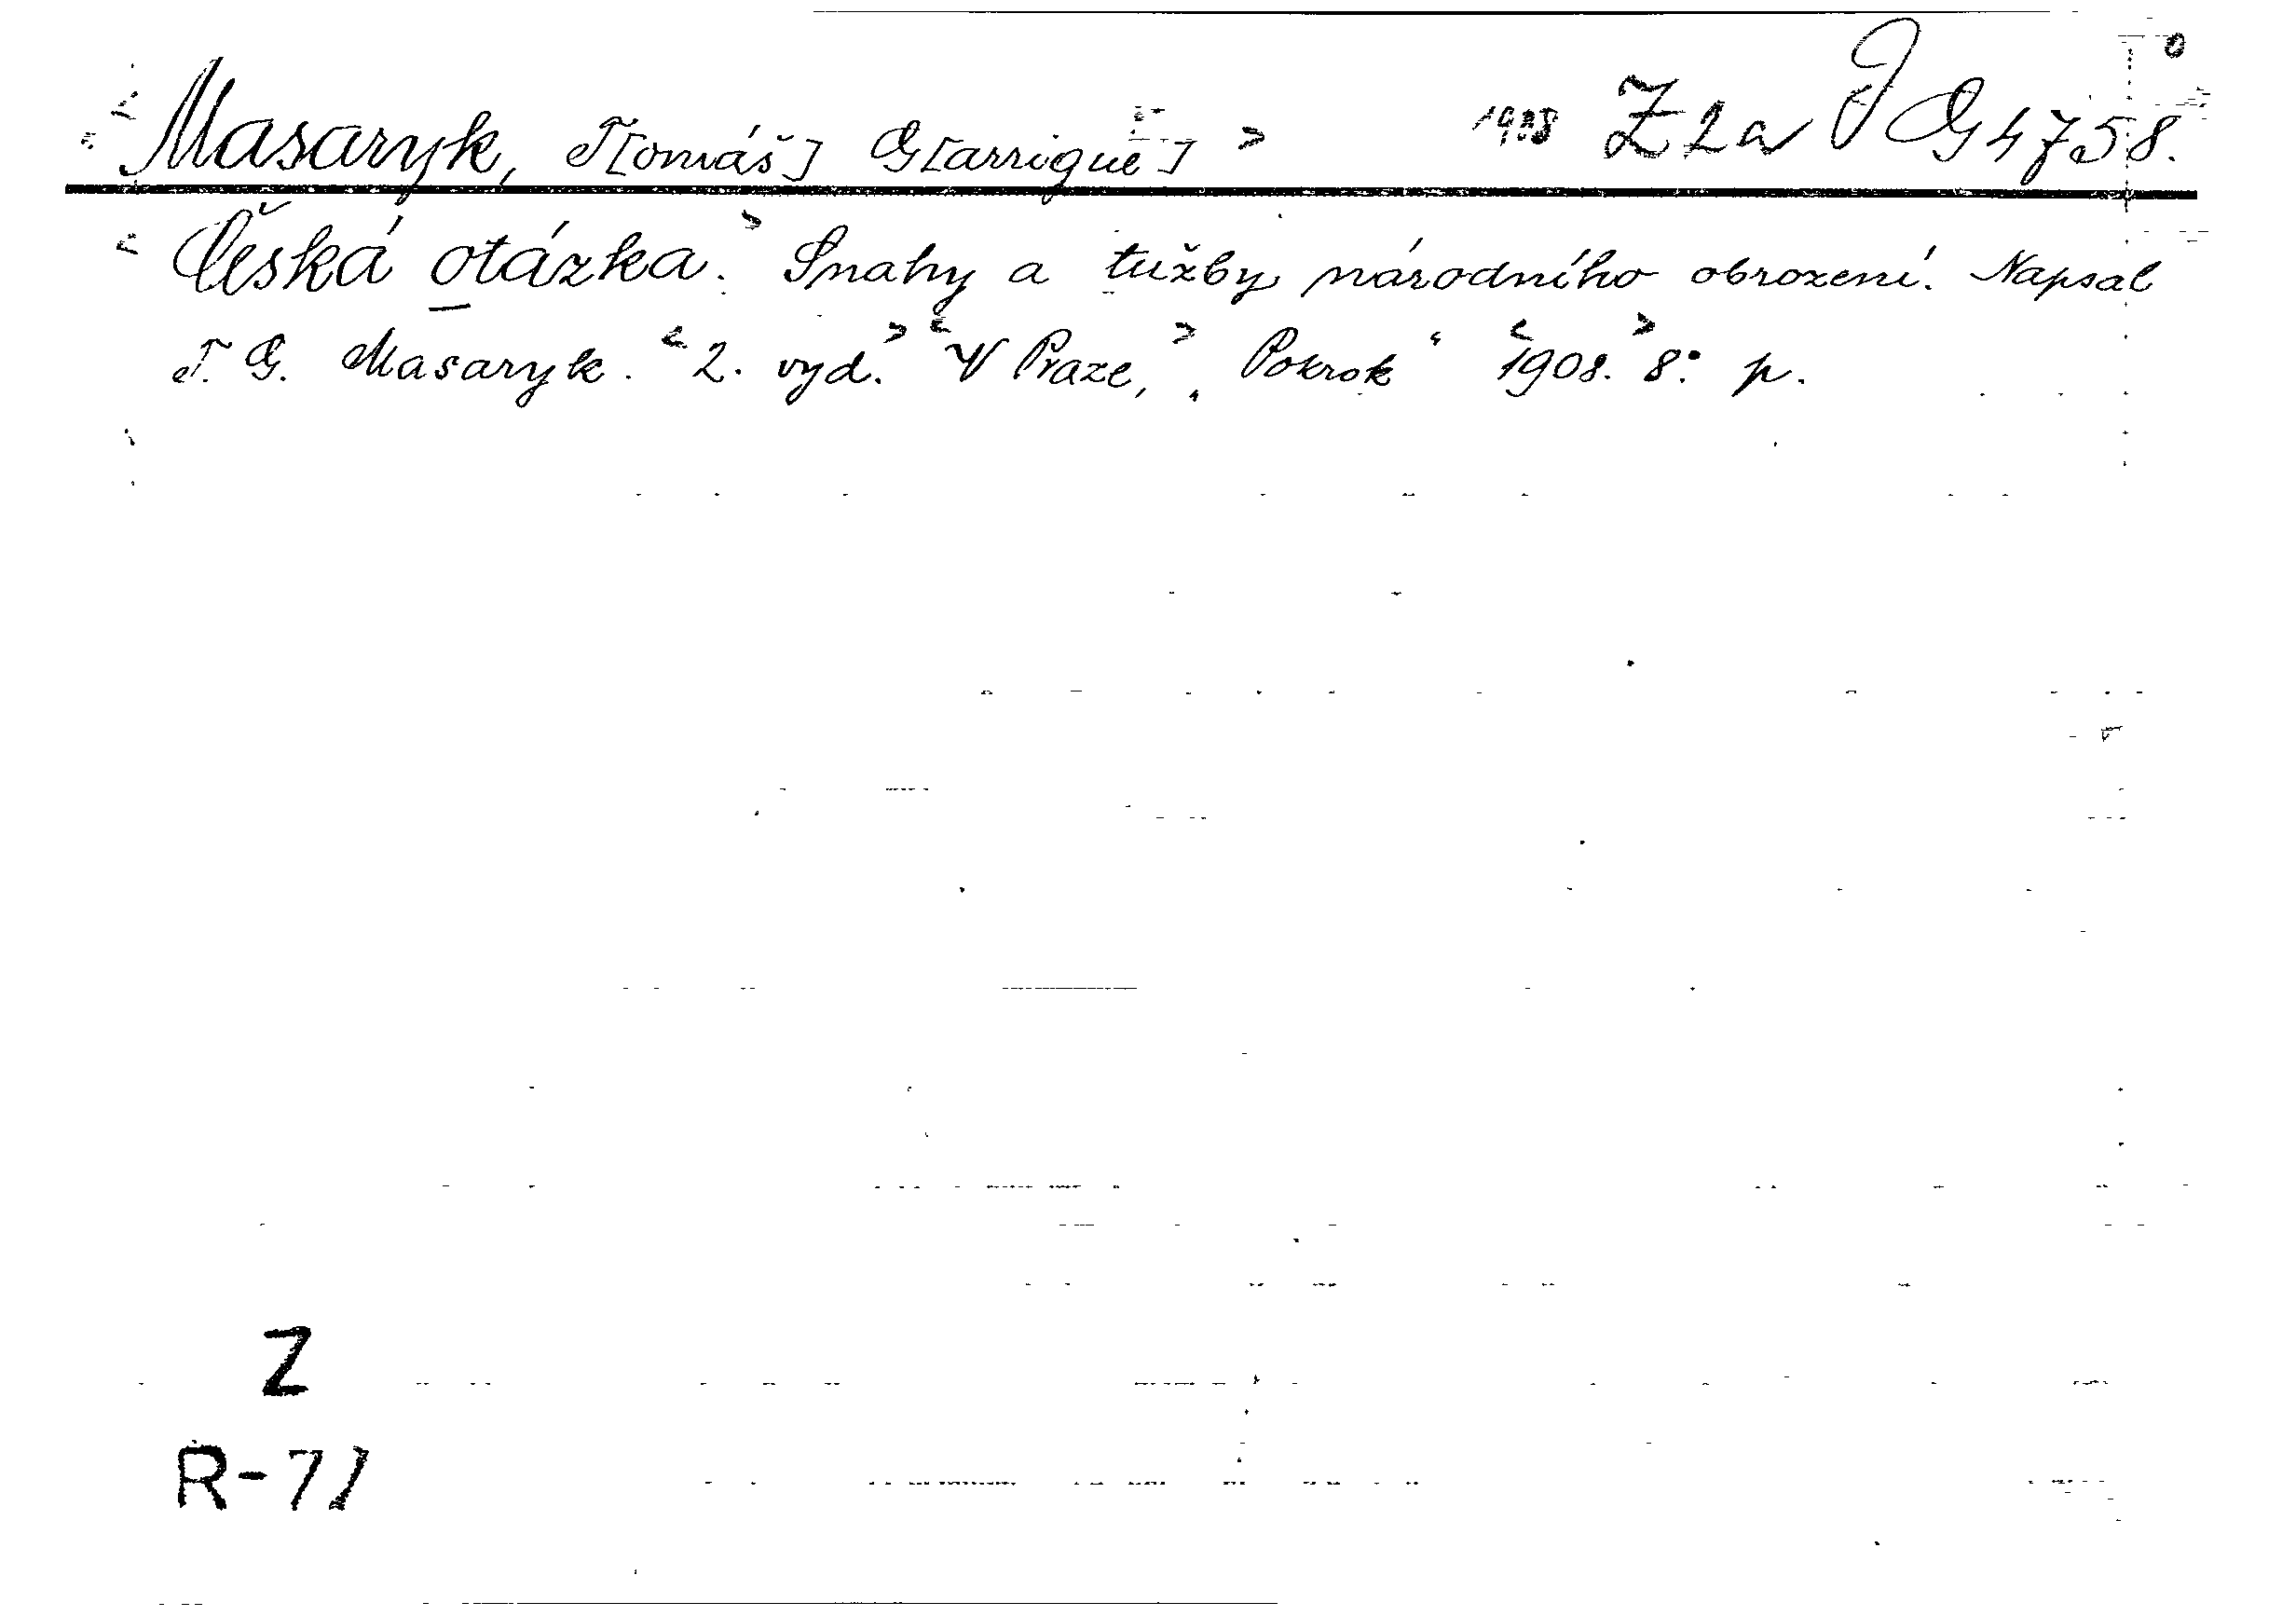 Masaryk, T[omáš] G[arrigue] > 1908 Z2a J G 4758.
< Česká otázka. > Snahy a tužby národního obrození. Napsal
T. G. Masaryk. < 2. vyd. > < V Praze, > „Pokrok“ < 1908. > 8° p.
Z
R-71